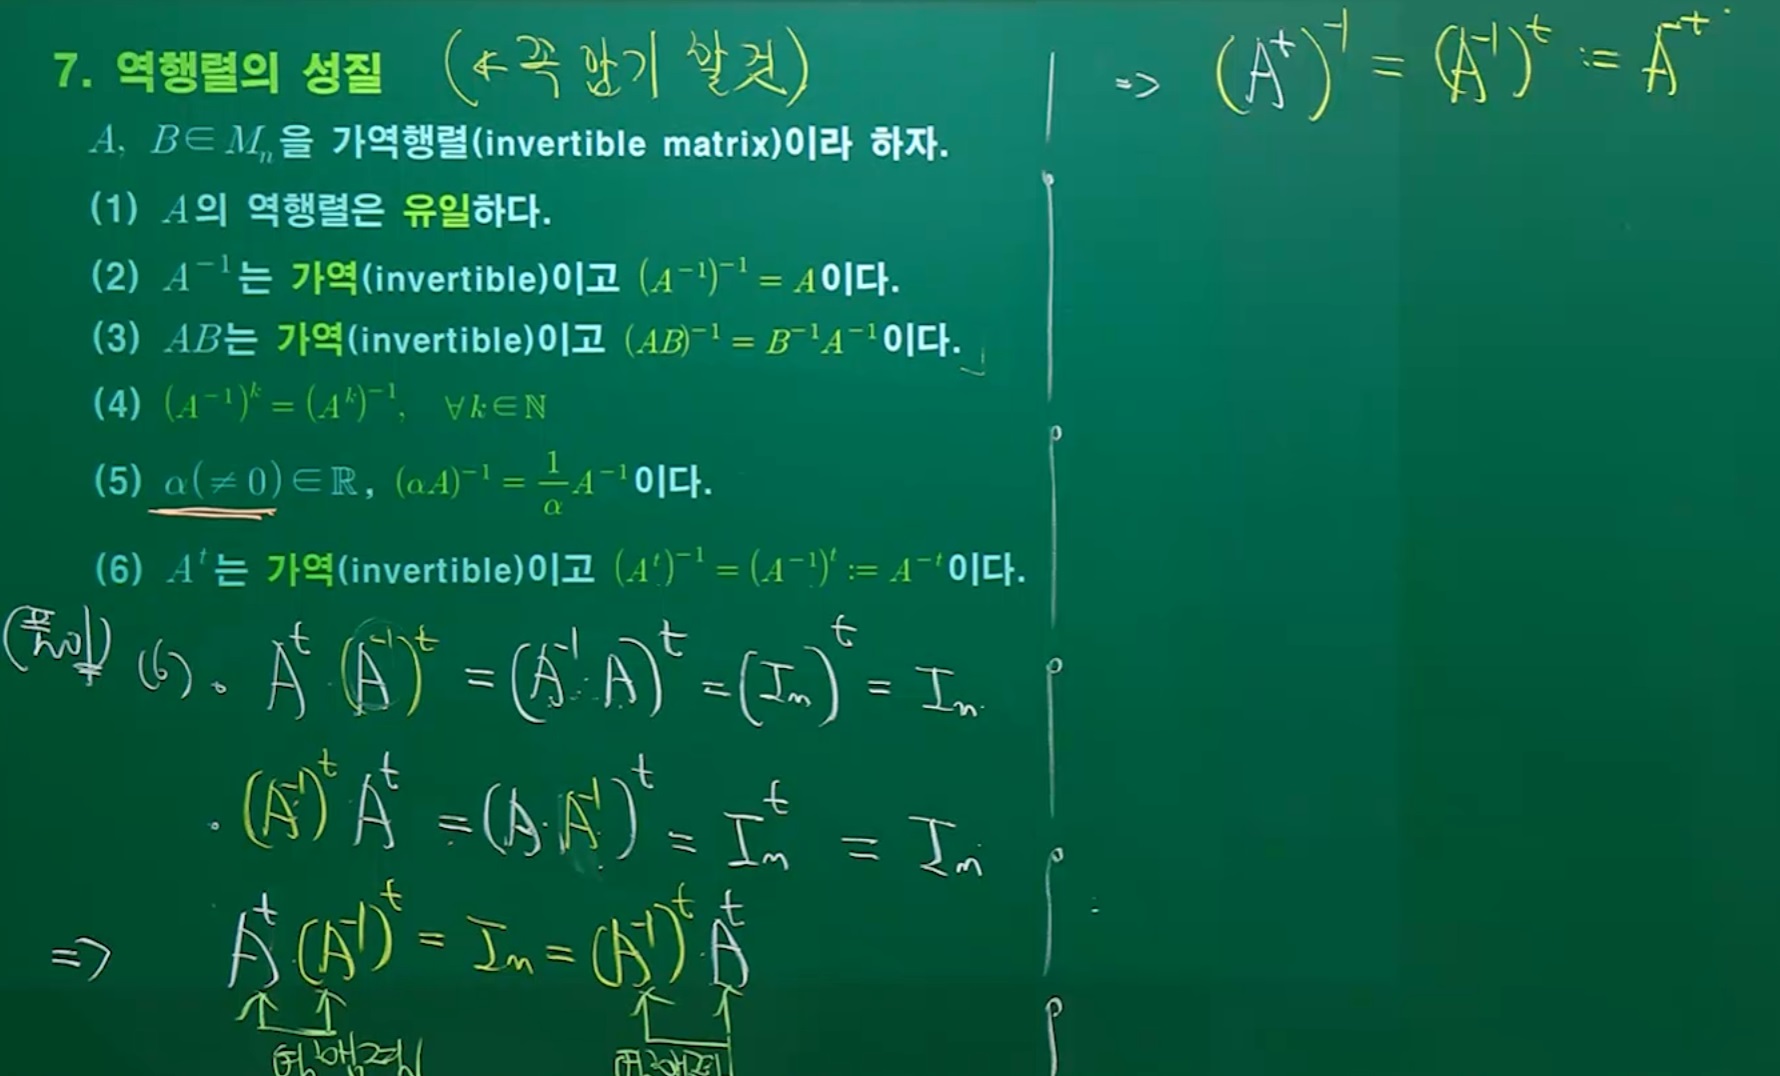 7. 역행렬의 성질 (← 꼭 암기 할 것)
A, B∈Mₙ을 가역행렬(invertible matrix)이라 하자.
(1) A의 역행렬은 유일하다.
(2) A⁻¹는 가역(invertible)이고 (A⁻¹)⁻¹ = A이다.
(3) AB는 가역(invertible)이고 (AB)⁻¹ = B⁻¹A⁻¹이다.
(4) (A⁻¹)ᵏ = (Aᵏ)⁻¹, ∀k∈ℕ
(5) α(≠0)∈ℝ, (αA)⁻¹ = 1/α A⁻¹이다.
(6) Aᵗ는 가역(invertible)이고 (Aᵗ)⁻¹ = (A⁻¹)ᵗ := A⁻ᵗ이다.
(풀이) (6). Aᵗ·(A⁻¹)ᵗ = (A⁻¹·A)ᵗ = (Iₙ)ᵗ = Iₙ.
· (A⁻¹)ᵗ Aᵗ = (A·A⁻¹)ᵗ = Iₙᵗ = Iₙ
⇒ Aᵗ·(A⁻¹)ᵗ = Iₙ = (A⁻¹)ᵗ·Aᵗ
역행렬 역행렬
⇒ (Aᵗ)⁻¹ = (A⁻¹)ᵗ := A⁻ᵗ.